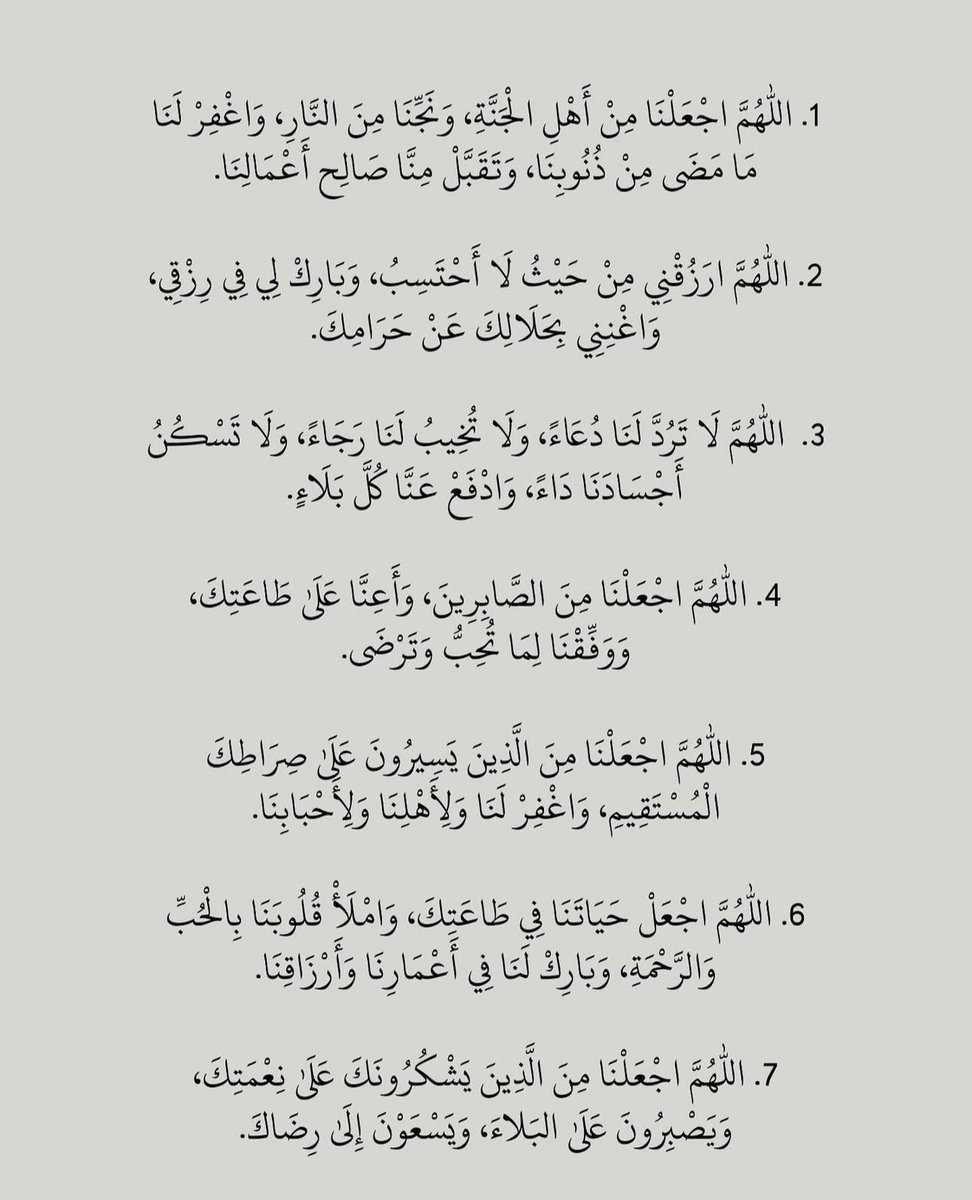 1. اللَّهُمَّ اجْعَلْنَا مِنْ أَهْلِ الْجَنَّةِ، وَنَجِّنَا مِنَ النَّارِ، وَاغْفِرْ لَنَا
مَا مَضَى مِنْ ذُنُوبِنَا، وَتَقَبَّلْ مِنَّا صَالِح أَعْمَالِنَا.
2. اللَّهُمَّ ارَزُقْنِي مِنْ حَيْثُ لَا أَحْتَسِبُ، وَبَارِكْ لِي فِي رِزْقِي،
وَاغْنِنِي بِحَلَالِكَ عَنْ حَرَامِكَ.
3. اللَّهُمَّ لَا تَرُدَّ لَنَا دُعَاءً، وَلَا تُخِيبُ لَنَا رَجَاءً، وَلَا تَسْكُنُ
أَجْسَادَنَا دَاءً، وَادْفَعْ عَنَّا كُلَّ بَلَاءٍ.
4. اللَّهُمَّ اجْعَلْنَا مِنَ الصَّابِرِينَ، وَأَعِنَّا عَلَىٰ طَاعَتِكَ،
وَوَفِّقْنَا لِمَا تُحِبُّ وَتَرْضَى.
5. اللَّهُمَّ اجْعَلْنَا مِنَ الَّذِينَ يَسِيرُونَ عَلَىٰ صِرَاطِكَ
الْمُسْتَقِيمِ، وَاغْفِرْ لَنَا وَلِأَهْلِنَا وَلِأَحْبَابِنَا.
6. اللَّهُمَّ اجْعَلْ حَيَاتَنَا فِي طَاعَتِكَ، وَامْلَأْ قُلُوبَنَا بِالْحُبِّ
وَالرَّحْمَةِ، وَبَارِكْ لَنَا فِي أَعْمَارِنَا وَأَرْزَاقِنَا.
7. اللَّهُمَّ اجْعَلْنَا مِنَ الَّذِينَ يَشْكُرُونَكَ عَلَىٰ نِعْمَتِكَ،
وَيَصْبِرُونَ عَلَىٰ البَلاءَ، وَيَسْعَوْنَ إِلَىٰ رِضَاكَ.